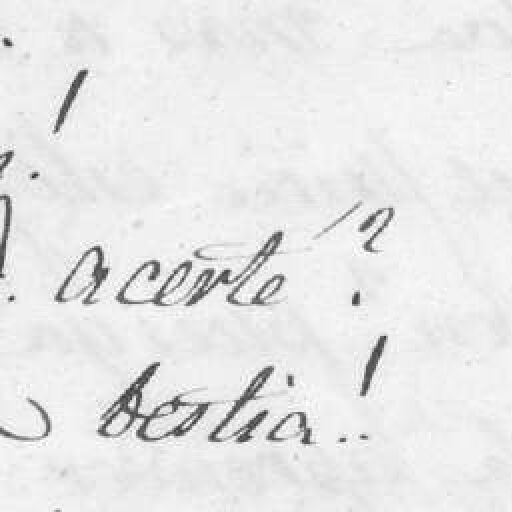 !
acerté?
bestia..!